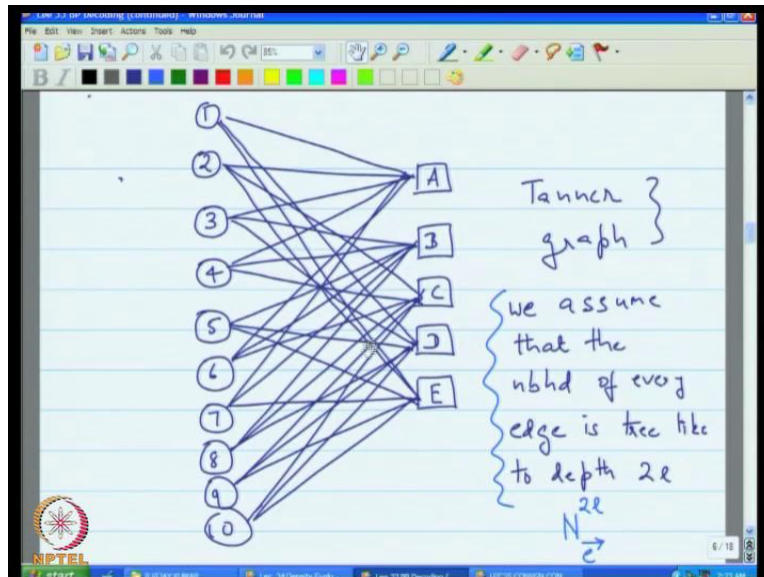 Lec 33 BP Decoding (continued) - Windows Journal
File Edit View Insert Actions Tools Help
85%
B I
1
2
3
4
5
6
7
8
9
10
A
B
C
D
E
Tanner
graph
we assume
that the
nbhd of every
edge is tree like
to depth 2l
N 2l
e
6 / 18
NPTEL
start
2:23 AM